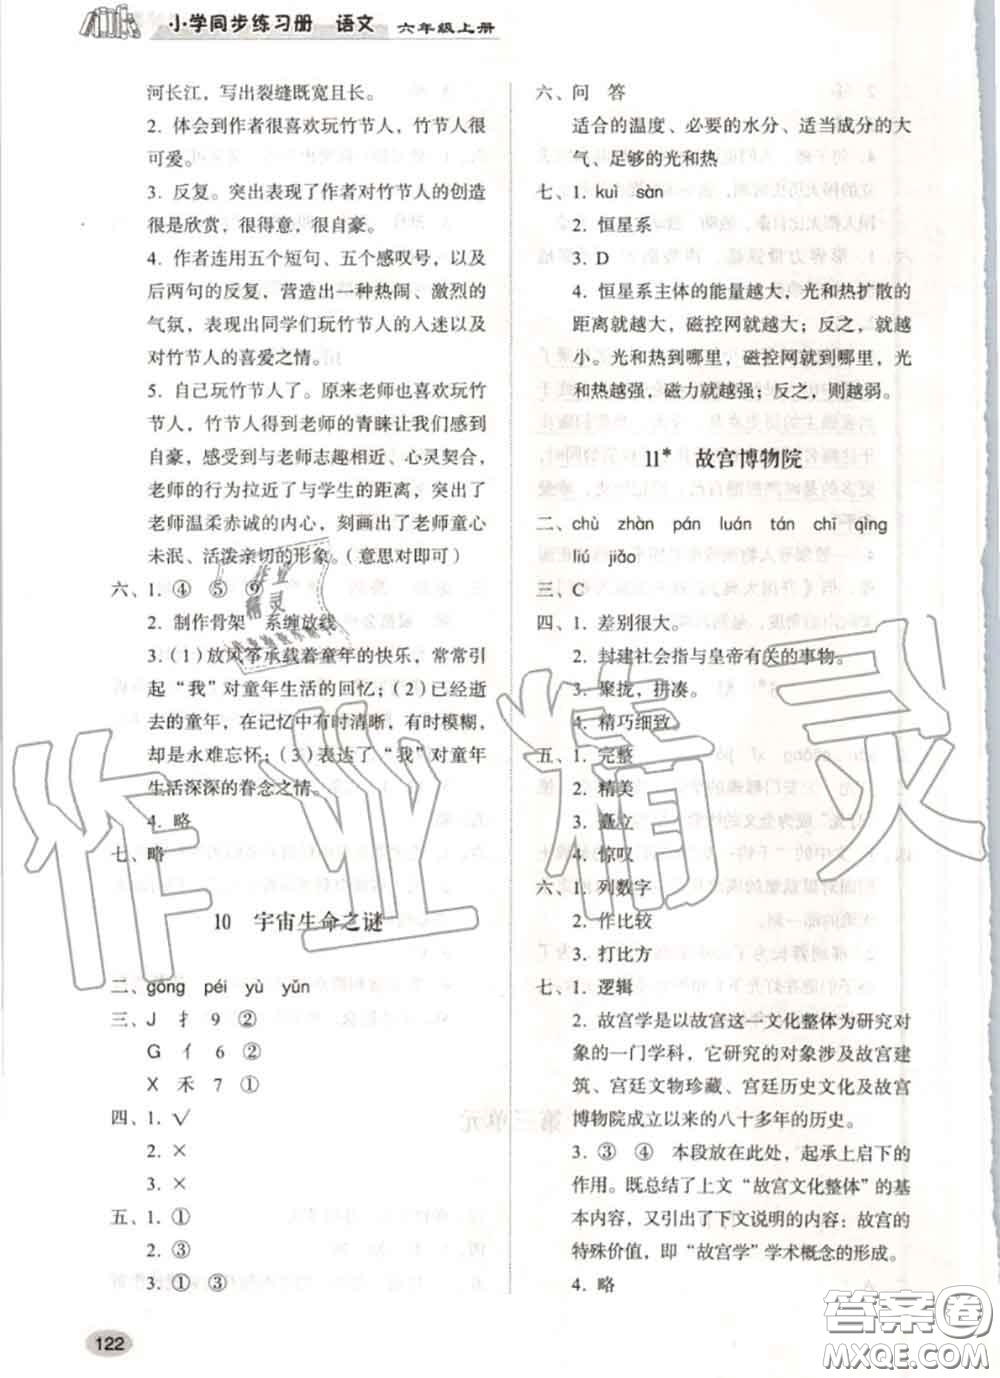 小学同步练习册 语文 六年级上册
河长江，写出裂缝既宽且长。
2. 体会到作者很喜欢玩竹节人，竹节人很
可爱。
3. 反复。突出表现了作者对竹节人的创造
很是欣赏，很得意，很自豪。
4. 作者连用五个短句、五个感叹号，以及
后两句的反复，营造出一种热闹、激烈的
气氛，表现出同学们玩竹节人的入迷以及
对竹节人的喜爱之情。
5. 自己玩竹节人了。原来老师也喜欢玩竹
节人，竹节人得到老师的青睐让我们感到
自豪，感受到与老师志趣相近、心灵契合，
老师的行为拉近了与学生的距离，突出了
老师温柔赤诚的内心，刻画出了老师童心
未泯、活泼亲切的形象。（意思对即可）
六、1. ④ ⑤ ⑨
2. 制作骨架 系缠放线
3.（1）放风筝承载着童年的快乐，常常引
起“我”对童年生活的回忆；（2）已经逝
去的童年，在记忆中有时清晰，有时模糊，
却是永难忘怀；（3）表达了“我”对童年
生活深深的眷念之情。
4. 略
七、略
10 宇宙生命之谜
二、gōng péi yù yǔn
三、J 扌 9 ②
G 亻 6 ②
X 禾 7 ①
四、1. √
2. ×
3. ×
五、1. ①
2. ③
3. ① ③
122
六、问 答
适合的温度、必要的水分、适当成分的大
气、足够的光和热
七、1. kuì sàn
2. 恒星系
3. D
4. 恒星系主体的能量越大，光和热扩散的
的距离就越大，磁控网就越大；反之，就越
小。光和热到哪里，磁控网就到哪里，光
和热越强，磁力就越强；反之，则越弱。
11* 故宫博物院
二、chù zhàn pán luán tán chī qìng
liú jiǎo
三、C
四、1. 差别很大。
2. 封建社会指与皇帝有关的事物。
3. 聚拢，拼凑。
4. 精巧细致。
五、1. 完整
2. 精美
3. 矗立
4. 惊叹
六、1. 列数字
2. 作比较
3. 打比方
七、1. 逻辑
2. 故宫学是以故宫这一文化整体为研究对
象的一门学科，它研究的对象涉及故宫建
筑、宫廷文物珍藏、宫廷历史文化及故宫
博物院成立以来的八十多年的历史。
3. ③ ④ 本段放在此处，起承上启下的
作用。既总结了上文“故宫文化整体”的基
本内容，又引出了下文说明的内容：故宫的
特殊价值，即“故宫学”学术概念的形成。
4. 略
作业精灵
作业
精灵
答案圈
MXQE.COM